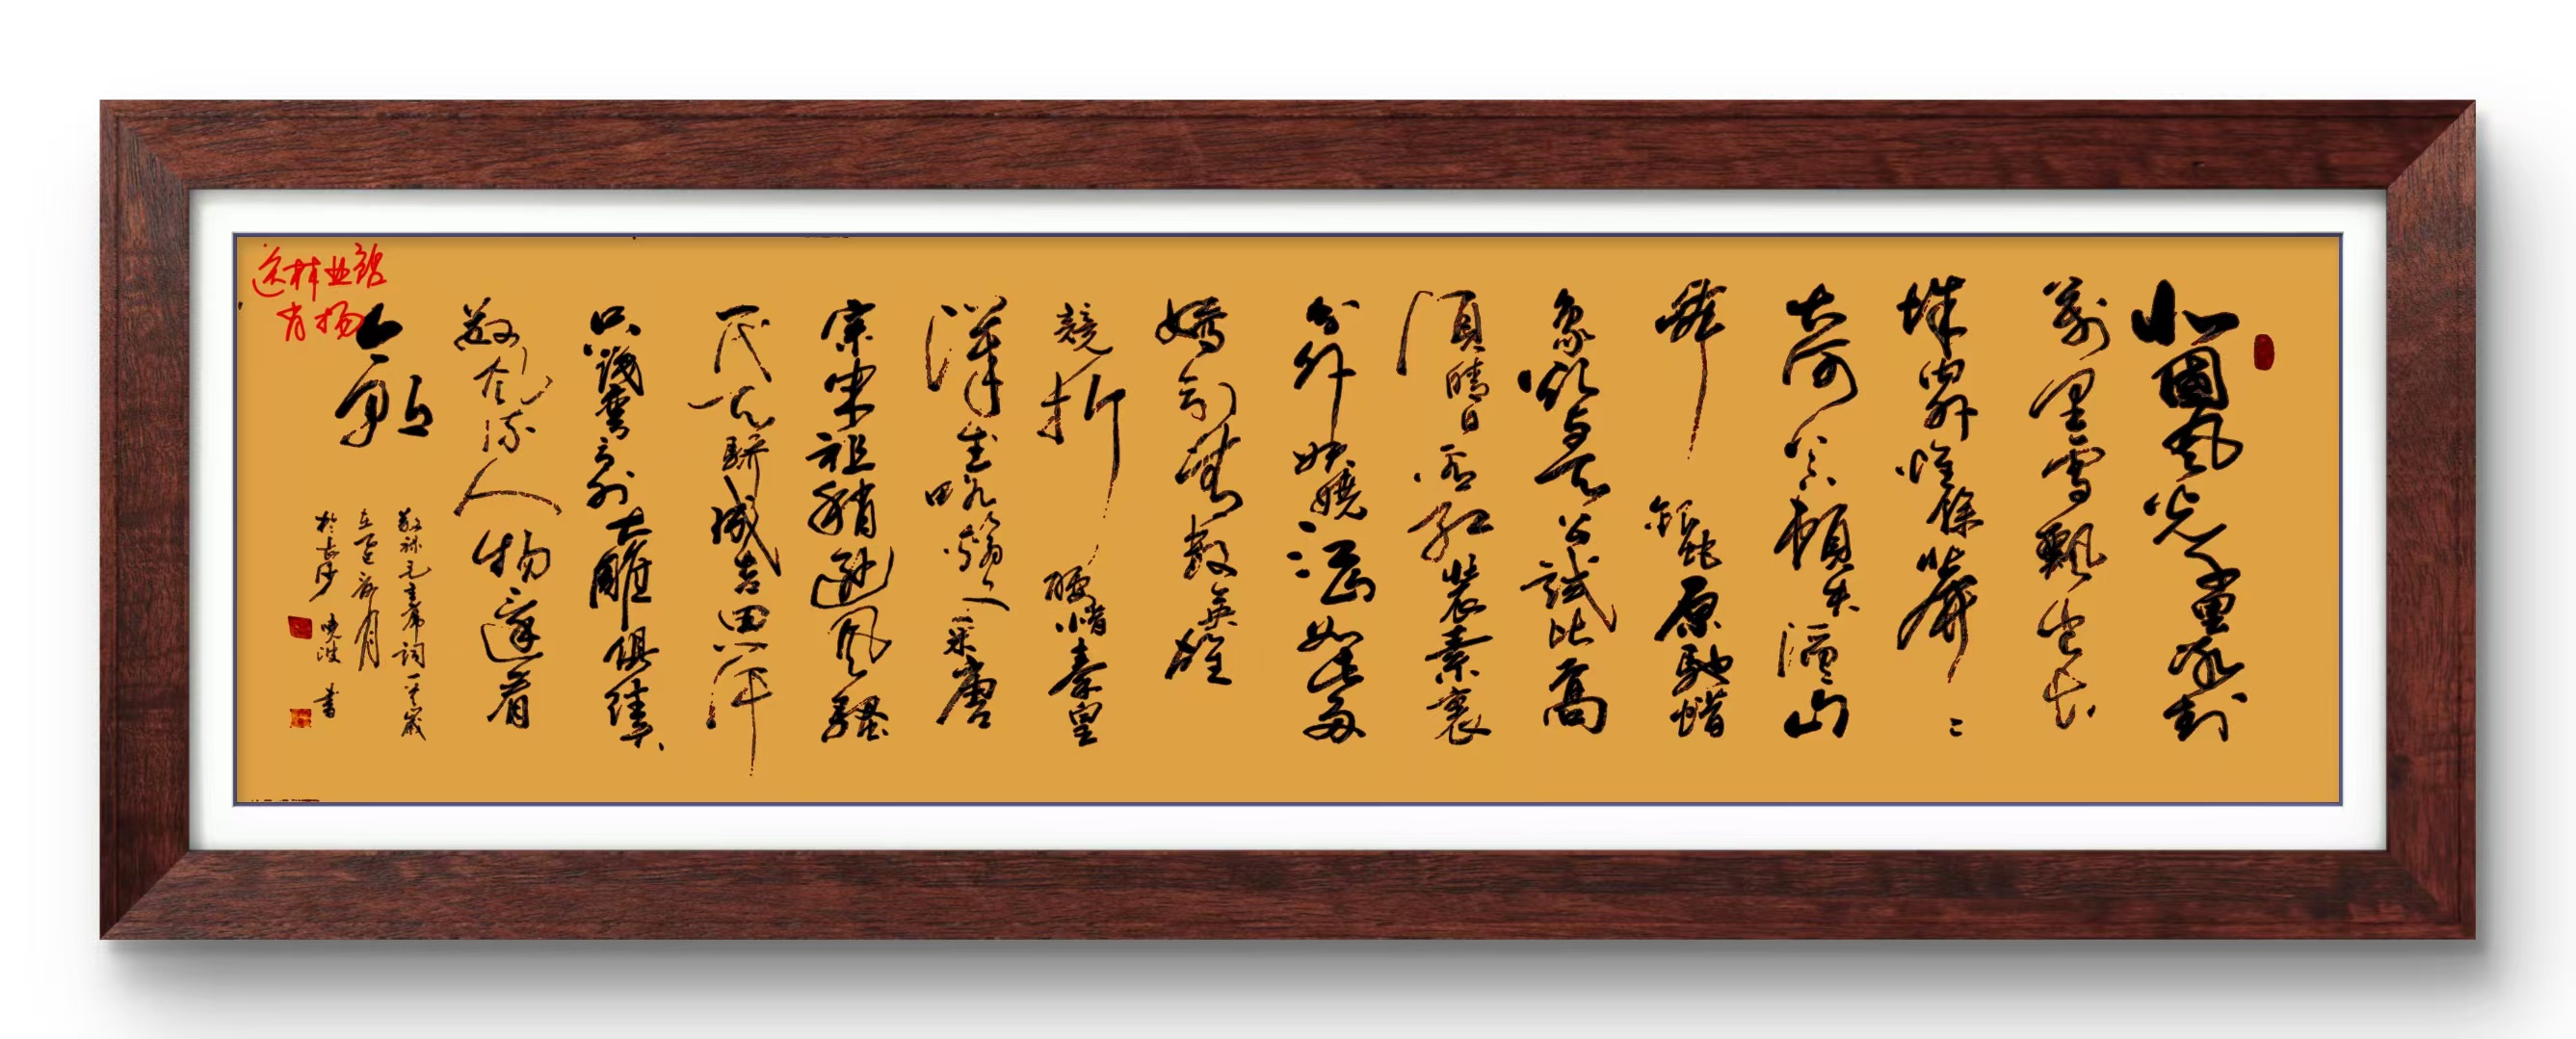 北國風光千里冰封
萬里雪飄望長
城内外惟餘莽〻
大河上下頓失滔〻山
舞銀蛇原馳蠟
象欲与天公試比高
須晴日看红裝素裹
分外妖嬈江山如此多
嬌引無數英雄
競折腰惜秦皇
漢武略輸文采唐
宗宋祖稍遜風騷
一代天驕成吉思汗
只識彎弓射大雕俱往矣
數風流人物還看
今朝
毛主席詞一首歲
月
於長沙 曉波 書